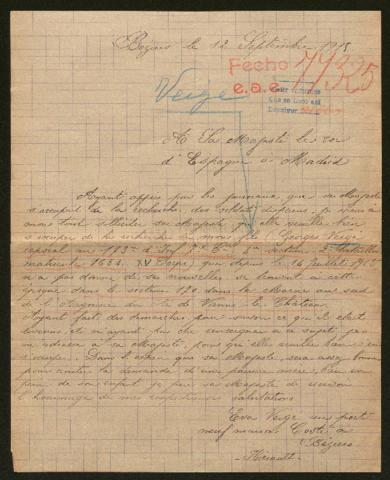 Beziers le 12 Septembre 1915
Fecho 77325
e.a.e.
Veige
A Sa Majesté le roi
d'Espagne a Madrid
Ayant appris par les journaux que sa Majesté
s'occupait de la recherche des soldats disparus, je viens à
mon tour solliciter sa Majesté pour qu'elle veuille bien
s'occuper de la recherche de mon fils Georges Veige
caporal au 113e d'Inf 7e Cie 2e Bataillon
matricule 1634 XV Corps, qui depuis le 14 juillet 1915
n'a pas donné de ses nouvelles, se trouvant à cette
époque dans le secteur 172 dans la Marne au sud
de l'Argonne du côté de Vienne le Château.
Ayant fait des démarches pour savoir ce qu'il était
devenu, et n'ayant pu être renseignée à ce sujet, je
m'adresse à sa Majesté, pour qu'elle veuille bien s'en
s'occuper. Dans l'espoir que sa Majesté, sera assez bonne
pour écouter la demande d'une pauvre mère, bien en
peine de son enfant je prie sa Majesté de recevoir
l'hommage de mes respectueuses salutations
Eva Veige au port
neuf maison Coste à
Béziers
- Hérault -